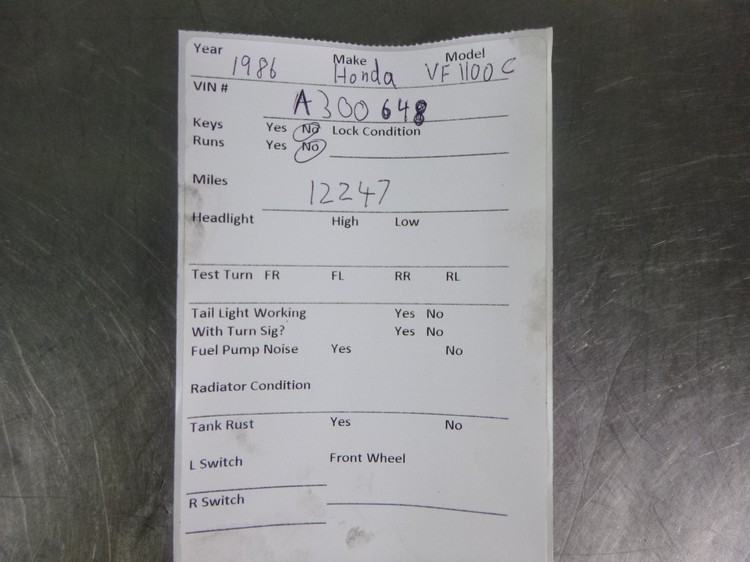 Year 1986 Make Honda Model VF1100C
VIN # A300648
Keys Yes No Lock Condition
Runs Yes No
Miles 12247
Headlight High Low
Test Turn FR FL RR RL
Tail Light Working Yes No
With Turn Sig? Yes No
Fuel Pump Noise Yes No
Radiator Condition
Tank Rust Yes No
L Switch Front Wheel
R Switch